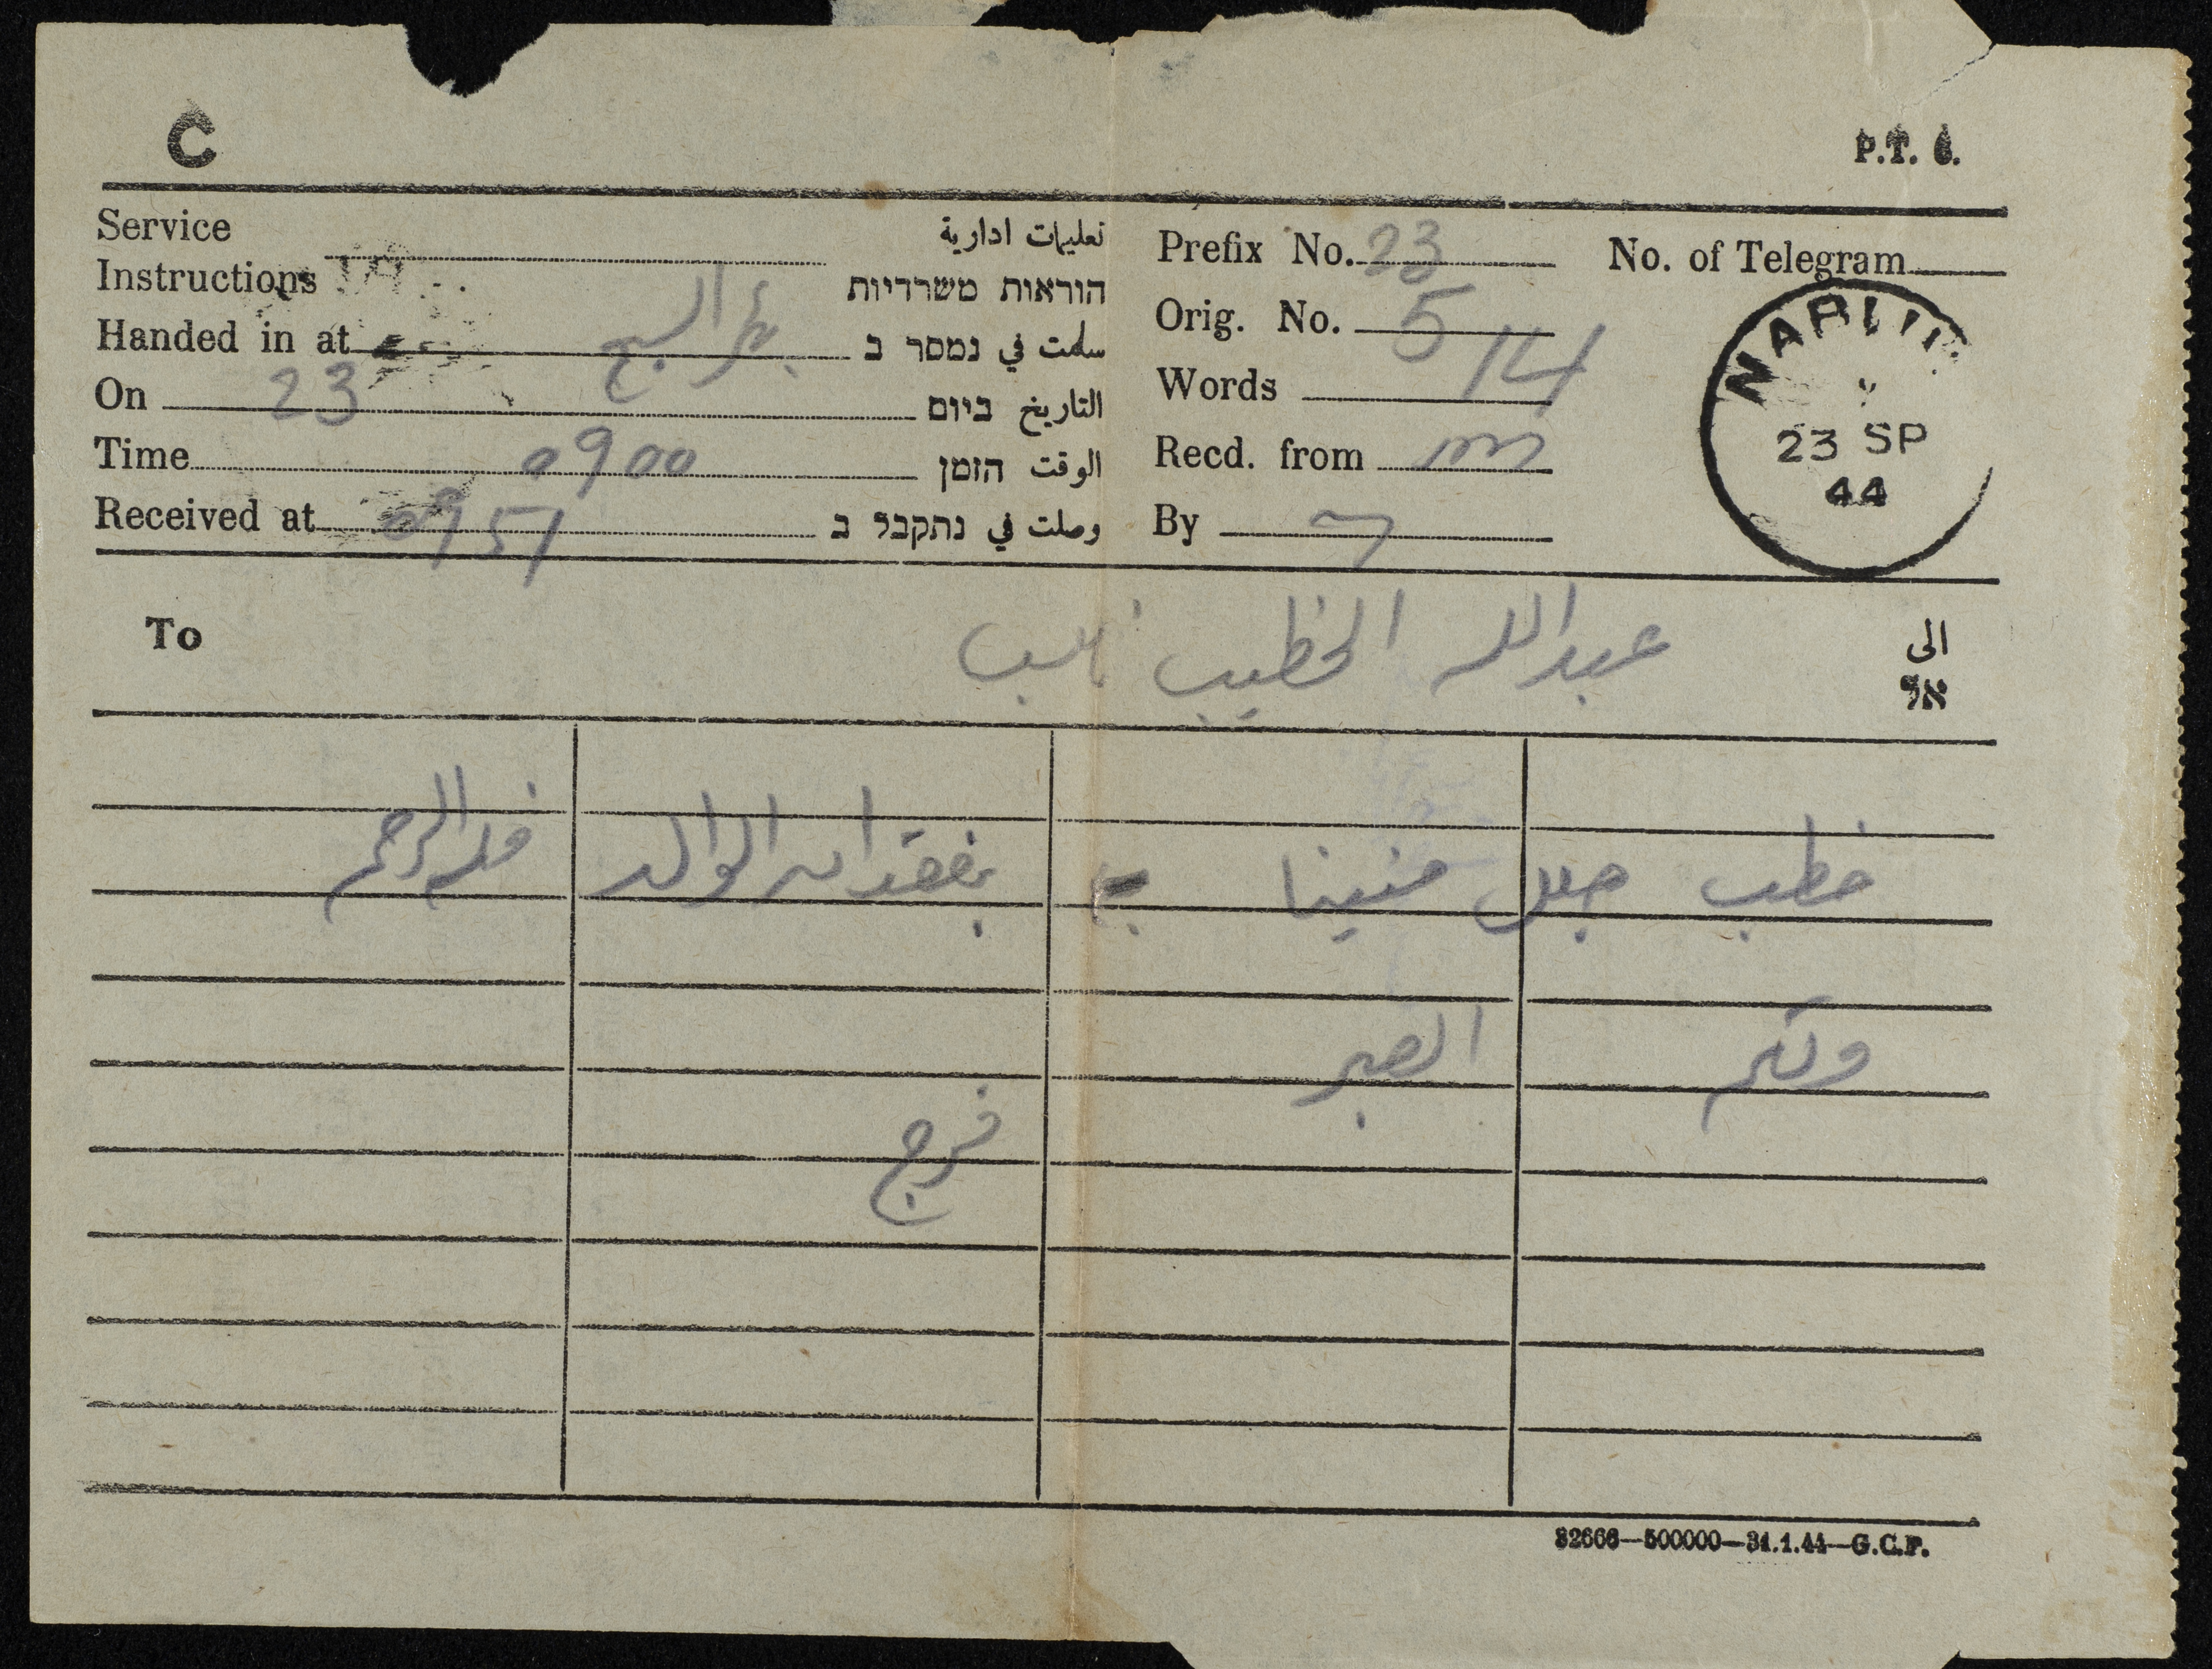 C
P.T. 6.
Service Instructions تعليمات ادارية
הוראות משרדיות
Handed in at بئر السبع سلمت في נמסר ב
On 23 التاريخ ביום
Time 0900 الوقت הזמן
Received at 0951 وصلت في נתקבל ב
Prefix No. 23 No. of Telegram
Orig. No. 5
Words 14
Recd. from
By
23 SP
44
To عبدالله الخطيب نابلس الى
אל
خطب جلل منينا به بفقدان الوالد فله الرحمة
ولكم الصبر
فرج
82666—500000—31.1.44—G.C.P.